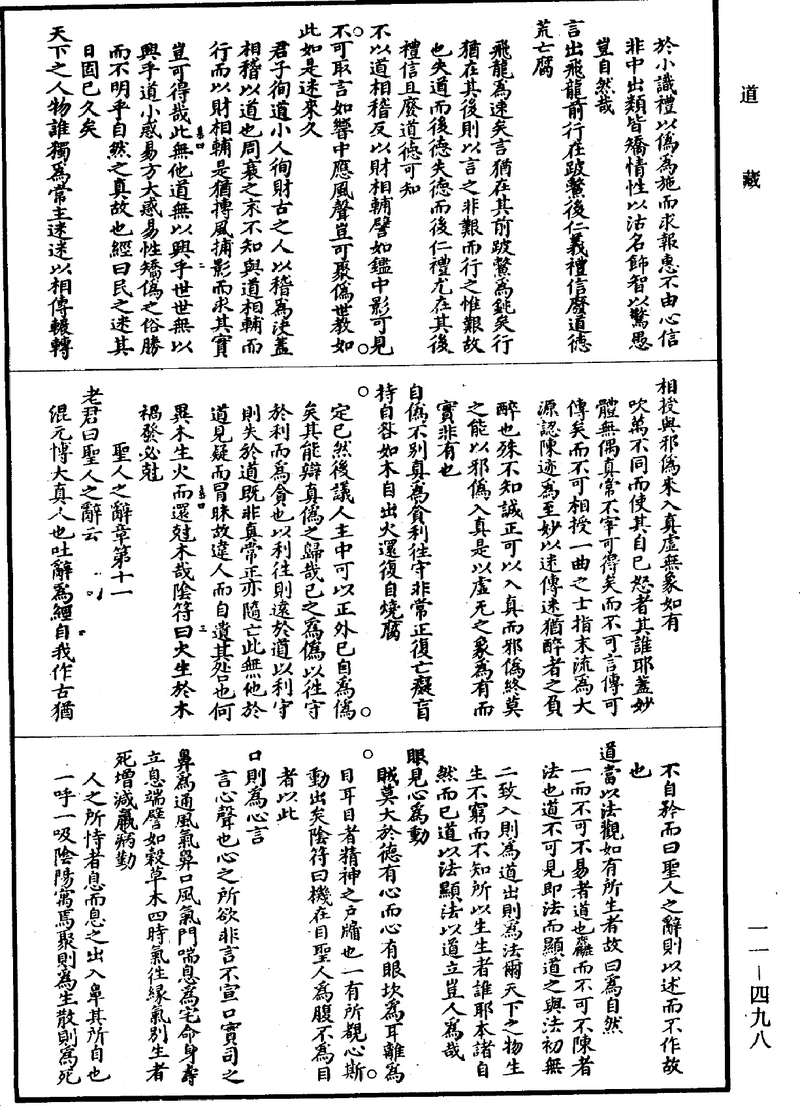 道藏
一一－四九八
於小識禮以偽為施而求報惠不由心信
非中出類皆矯情性以沽名飾智以驚愚
豈自然哉
言出飛龍前行在跛鱉後仁義禮信廢道德
荒亡腐
飛龍為速矣言猶在其前跛鱉為鈍矣行
猶在其後則以言之非艱而行之惟艱故
也失道而後德失德而後仁禮尤在其後
禮信且廢道德可知
不以道相稽反以財相輔譬如鑑中影可見
不可取言如響中應風聲豈可聚偽世教如
此如是迷來久
君子徇道小人徇財古之人以稽為決蓋
相稽以道也周衰之末不知與道相輔而
行而以財相輔是猶摶風捕影而求其實
豈可得哉此無他道無以興乎世世無以
興乎道小惑易方大惑易性矯偽之俗勝
而不明乎自然之真故也經曰民之迷其
日固已久矣
天下之人物誰獨為常主迷迷以相傳轅轉
相授與邪偽來入真虛無象如有
吹萬不同而使其自已怒者其誰耶蓋妙
體無偶真常不宰可得矣而不可言傳可
傳矣而不可相授一曲之士指末流為大
源認陳迹為至妙以迷傳迷猶醉者之負
醉也殊不知誠正可以入真而邪偽終莫
之能以邪偽入真是以虛无之象為有而
實非有也
自偽不別真為貪利往守非常正復亡癡盲
持自咎如木自出火還復自燒腐
定已然後議人主中可以正外已自為偽
矣其能辯真偽之歸哉已之為偽以往守
於利而為貪也以利往則遠於道以利守
則失於道既非真常正亦隨亡此無他於
道見疑而冒昧故違人而自遺其咎也何
異木生火而還尅木哉陰符曰火生於木
禍發必尅
聖人之辭章第十一
老君曰聖人之辭云
混元博大真人也吐辭為經自我作古猶
不自矜而曰聖人之辭則以述而不作故
也
道當以法觀如有所生者故曰為自然
一而不可不易者道也麤而不可不陳者
法也道不可見即法而顯道之與法初無
二致入則為道出則為法爾天下之物生
生不窮而不知所以生生者誰耶本諸自
然而已道以法顯法以道立豈人為哉
眼見心為動
賊莫大於德有心而心有眼坎為耳離為
目耳目者精神之戶牖也一有所覩心斯
動出矣陰符曰機在目聖人為腹不為目
者以此
口則為心言
言心聲也心之所欲非言不宣口實司之
鼻為通風氣鼻口風氣門喘息為宅命身壽
立息端譬如穀草木四時氣往緣氣別生者
死增減羸病勤
人之所恃者息而息之出入鼻其所自也
一呼一吸陰陽寓焉聚則為生散則為死